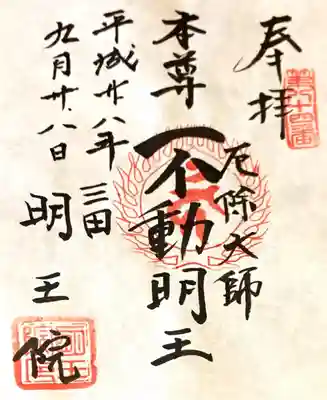 奉拝
第六十四番
厄除大師
本尊
不動明王
平成廿八年
九月廿八日
三田
明王院